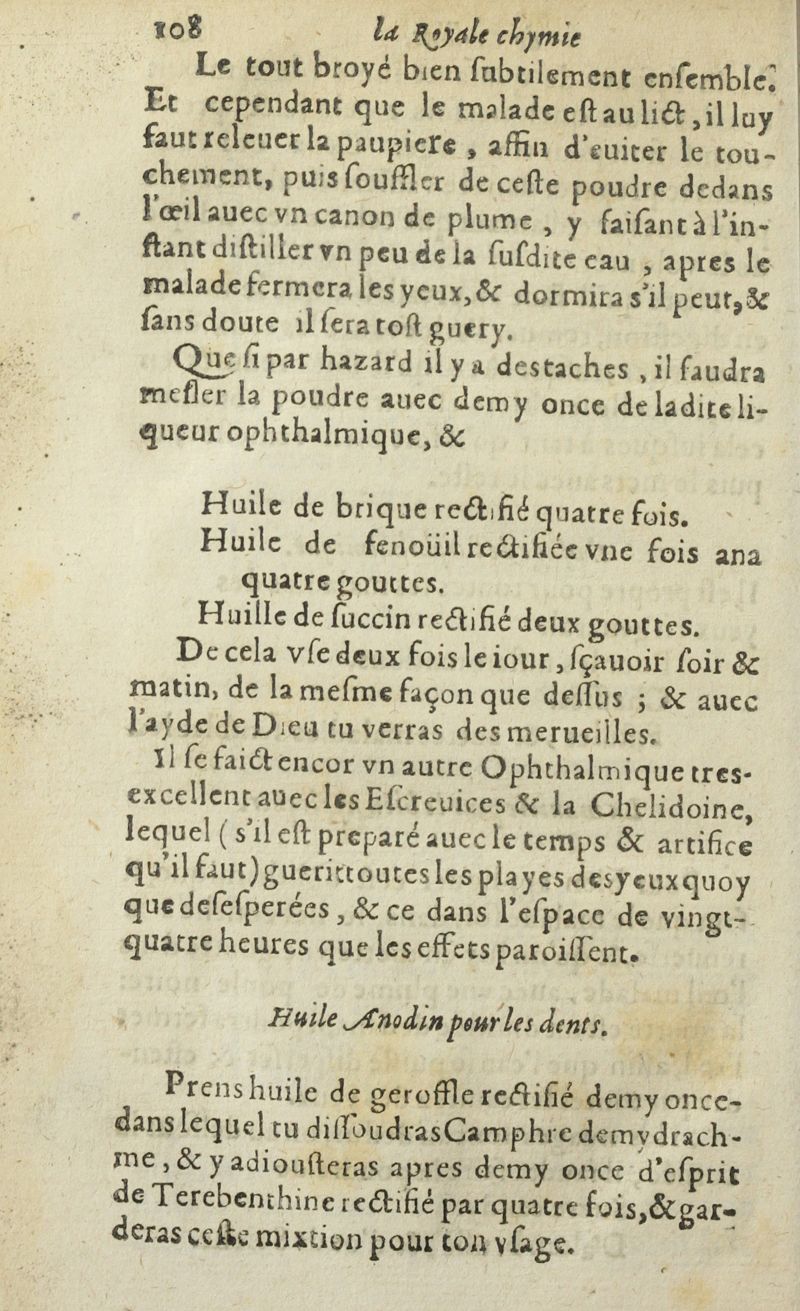 108 la Royale chymie
Le tout broyé bien ſubtilement enſemble.
Et cependant que le malade eſt au lict, il luy
faut releuer la paupiere, affin d'euiter le tou-
chement, puis ſouffler de ceſte poudre dedans
l'œil auec vn canon de plume, y faiſant à l'in-
ſtant diſtiller vn peu de la ſuſdite eau, apres le
malade fermera les yeux, & dormira s'il peut, &
ſans doute il ſera toſt guery.
Que ſi par hazard il y a des taches, il faudra
meſler la poudre auec demy once de ladite li-
queur ophthalmique, &
Huile de brique rectifié quatre fois.
Huile de fenoüil rectifiée vne fois ana
quatre gouttes.
Huille de ſuccin rectifié deux gouttes.
De cela vſe deux fois le iour, ſçauoir ſoir &
matin, de la meſme façon que deſſus ; & auec
l'ayde de Dieu tu verras des merueilles.
Il ſe faict encor vn autre Ophthalmique tres-
excellent auec les Eſcreuices & la Chelidoine,
lequel ( s'il eſt preparé auec le temps & artifice
qu'il faut) guerit toutes les playes des yeux quoy
que deſeſperées, & ce dans l'eſpace de vingt-
quatre heures que les effets paroiſſent.
Huile Anodin pour les dents.
Prens huile de geroffle rectifié demy once-
dans lequel tu diſſoudras Camphre demy drach-
me, & y adiouſteras apres demy once d'eſprit
de Terebenthine rectifié par quatre fois, & gar-
deras ceſte mixtion pour ton vſage.